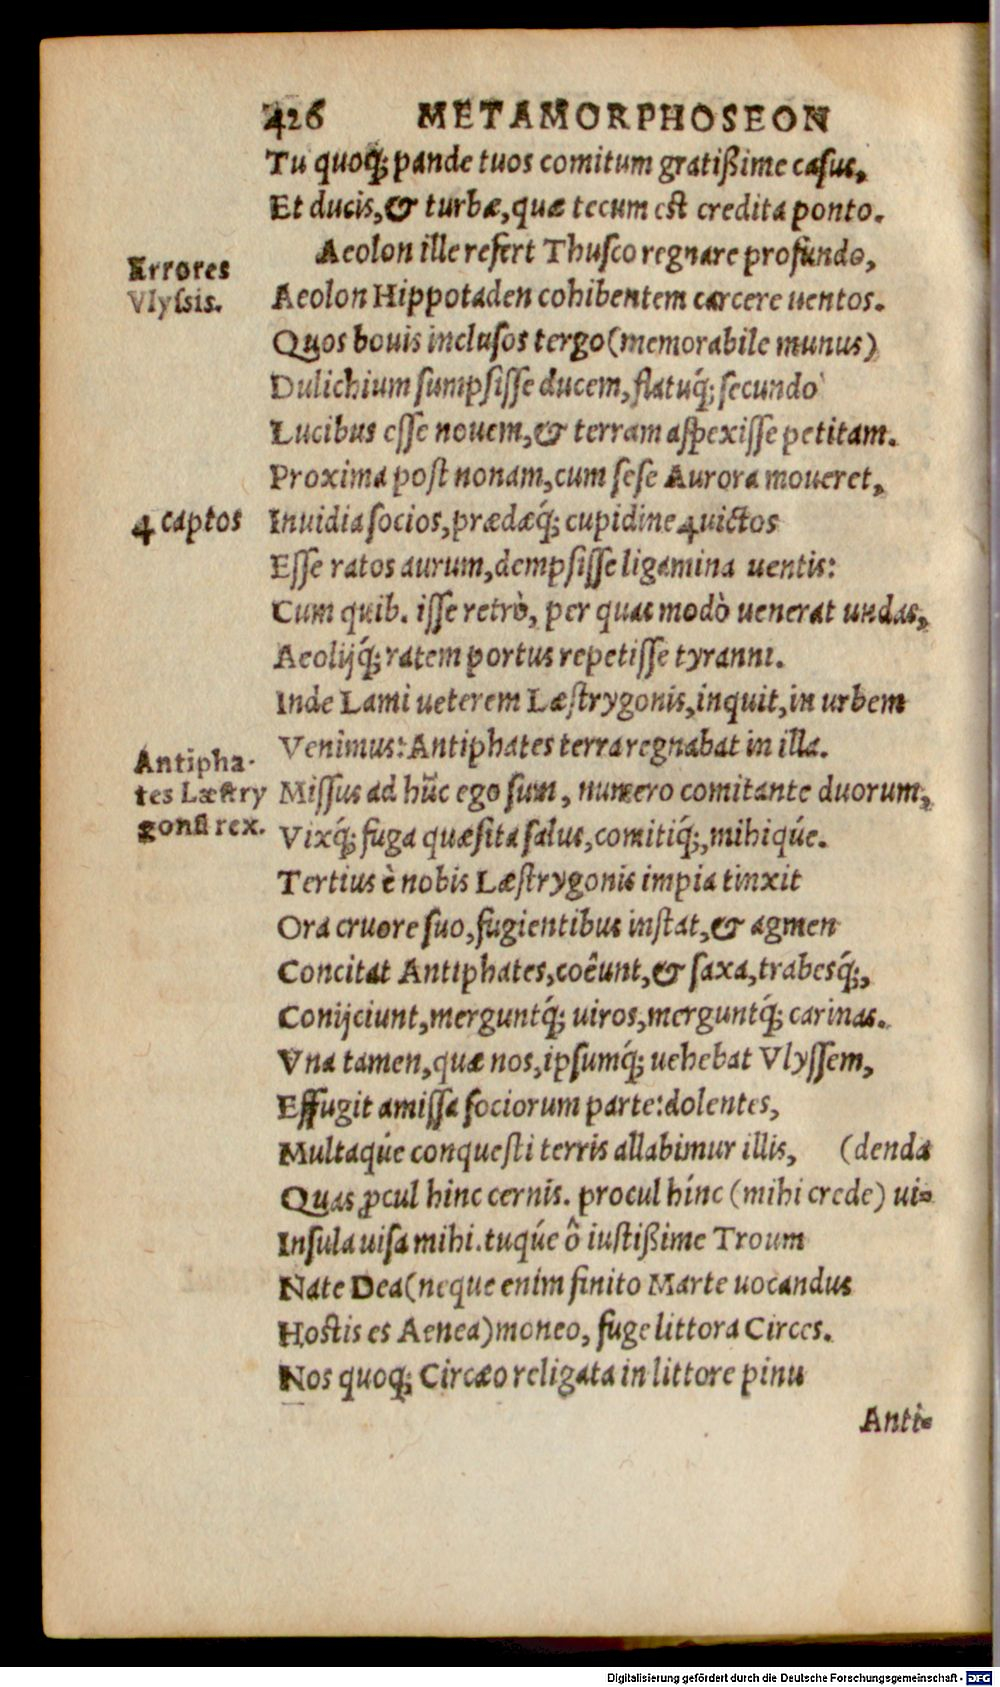 426 METAMORPHOSEON
Tu quoq; pande tuos comitum gratißime casus,
Et ducis, & turbæ, quæ tecum est credita ponto.
Aeolon ille refert Thusco regnare profundo,
Errores
Vlyssis.
Aeolon Hippotaden cohibentem carcere uentos.
Quos bouis inclusos tergo (memorabile munus)
Dulichium sumpsisse ducem, flatuq́; secundo
Lucibus esse nouem, & terram aspexisse petitam.
Proxima post nonam, cum sese Aurora moueret,
4 captos
Inuidia socios, prædæq́; cupidine 4 uictos
Esse ratos aurum, dempsisse ligamina uentis:
Cum quib. isse retrò, per quas modò uenerat undas,
Aeolijq́; ratem portus repetisse tyranni.
Inde Lami ueterem Læstrygonis, inquit, in urbem
Venimus: Antiphates terra regnabat in illa.
Antipha-
tes Læstry
gonũ rex.
Missus ad hũc ego sum, numero comitante duorum,
Vixq́; fuga quæsita salus, comitiq́;, mihiqúe.
Tertius è nobis Læstrygonis impia tinxit
Ora cruore suo, fugientibus instat, & agmen
Concitat Antiphates, coêunt, & saxa, trabesq́;,
Conijciunt, merguntq́; uiros, merguntq́; carinas.
Vna tamen, quæ nos, ipsumq́; uehebat Vlyssem,
Effugit amissa sociorum parte: dolentes,
Multaqúe conquesti terris allabimur illis, (denda
Quas ꝓcul hinc cernis. procul hinc (mihi crede) ui-
Insula uisa mihi. tuqúe ô iustißime Troum
Nate Dea (neque enim finito Marte uocandus
Hostis es Aenea) moneo, fuge littora Circes.
Nos quoq; Circæo religata in littore pinu
Anti-
Digitalisierung gefördert durch die Deutsche Forschungsgemeinschaft - DFG